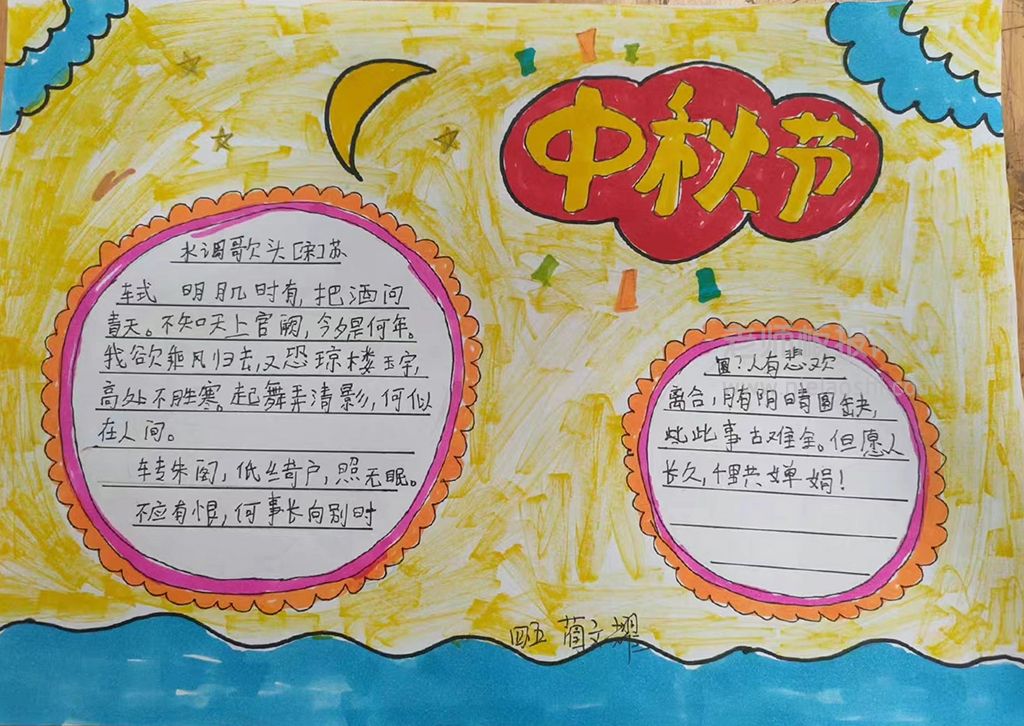 中秋节
水调歌头[宋]苏
轼 明月几时有,把酒问
青天。不知天上宫阙,今夕是何年。
我欲乘风归去,又恐琼楼玉宇,
高处不胜寒。起舞弄清影,何似
在人间。
转朱阁,低绮户,照无眠。
不应有恨,何事长向别时
圆?人有悲欢
离合,月有阴晴圆缺,
此此事古难全。但愿人
长久,千里共婵娟!
四五 蔺文耀